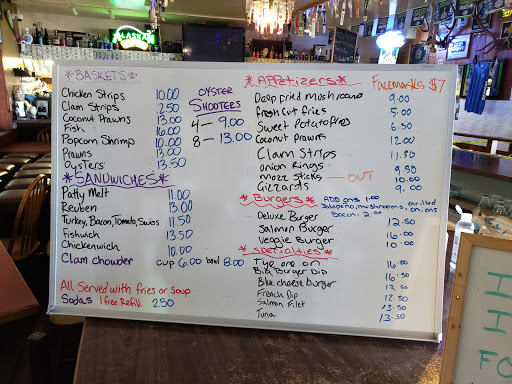 ALASKA
*BASKETS*
Chicken Strips 10.00
Clam Strips 2.50
Coconut Prawns 13.00
Fish 16.00
Popcorn Shrimp 10.00
Prawns 13.00
Oysters 13.50
*SANDWICHES*
Patty Melt 11.00
Reuben 13.00
Turkey, Bacon, Tomato, Swiss 11.50
Fishwich 13.50
Chickenwich 10.00
Clam chowder cup 6.00 bowl 8.00
All Served with fries or Soup
Sodas 1 free Refill 2.50
OYSTER
SHOOTERS
4 — 9.00
8 — 13.00
*APPetizers*
Facemasks $7
Deep fried mushrooms 9.00
fresh cut fries 5.00
Sweet Potato fries 6.50
Coconut prawns 12.00
Clam Strips 11.50
onion Rings 9.50
mozz sticks — OUT 10.00
Gizzards 9.00
*Burgers*
ADD ons 1.00
Jalapeno, mushrooms, grilled onions
Bacon - 2.00
Deluxe Burger 12.50
Salmon Burger 16.00
Veggie Burger 10.00
*specialties*
Tye one on 16.00
Big Burger Dip 16.50
Blue cheese burger 13.50
French Dip 12.50
Salmon Filet 13.50
Tuna 13.50
I
I
FO